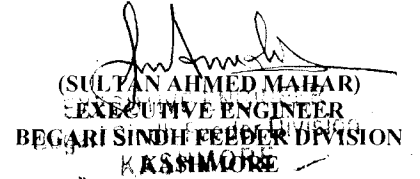 (SULTAN AHMED MAHAR)
EXECUTIVE ENGINEER
BEGARI SINDH FEEDER DIVISION
KASHMORE